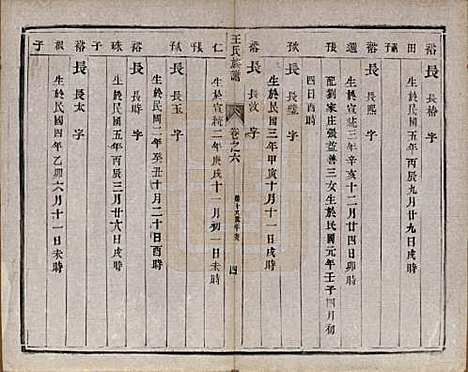 裕 長 長椿 字
田 生於民國五年丙辰九月廿九日戌時
裕 長 長熙 字
選 生於宣統三年辛亥十一月廿四日卯時
張 配劉家庄張益善三女生於民國元年壬子四月初
四日酉時
裕 長 長瑩 字
生於民國三年甲寅十月十一日戌時
裕 長 長汶 字
仁 生於宣統二年庚戌十一月初一日戌時
王氏族譜
卷之六
四
長 長玉 字
生於民國二年癸丑十月二十日酉時
裕 長 長時 字
珠 子 生於民國五年丙辰三月廿六日戌時
長 長太 字
生於民國四年乙卯六月十一日未時